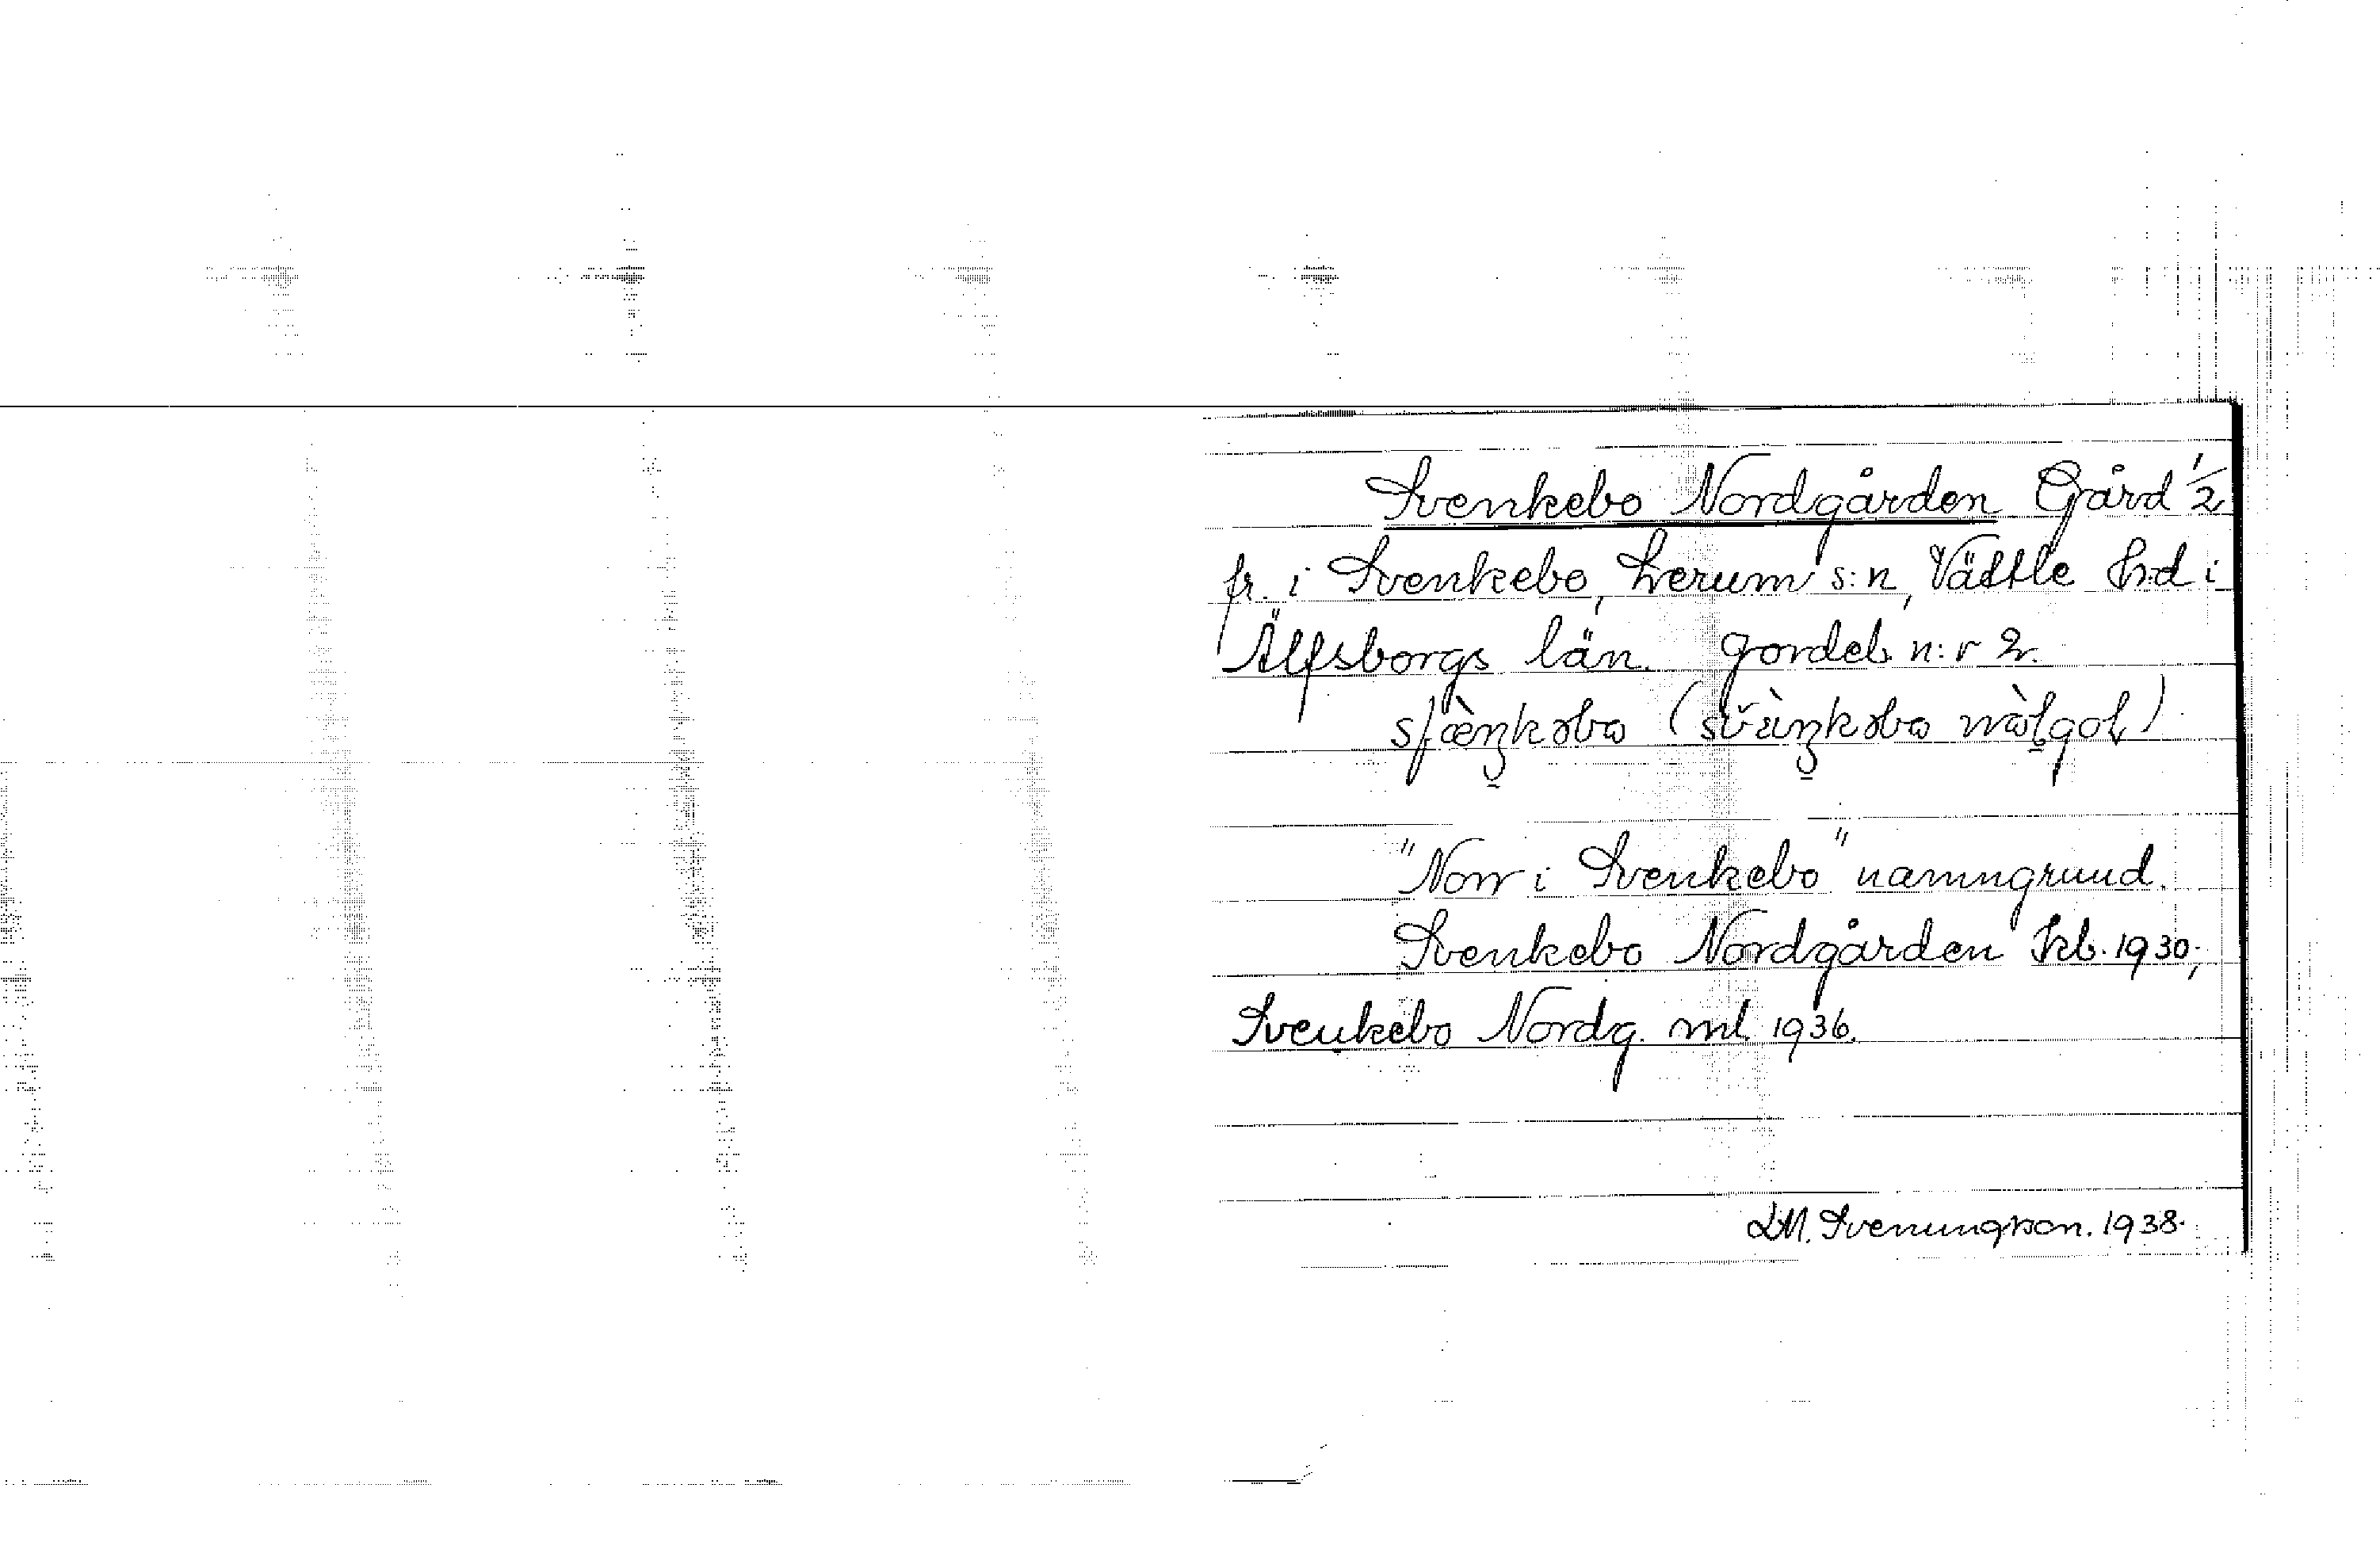 Svenkebo Nordgården Gård 1/2
fr. i Svenkebo, Lerum s:n, Vättle h:d i
Älfsborgs län. Jordeb. n:r 2.
"Norr i Svenkebo" namngrund.
Svenkebo Nordgården Jrb. 1930,
Svenkebo Nordg. ml. 1936.
LM. Svenungson. 1938.